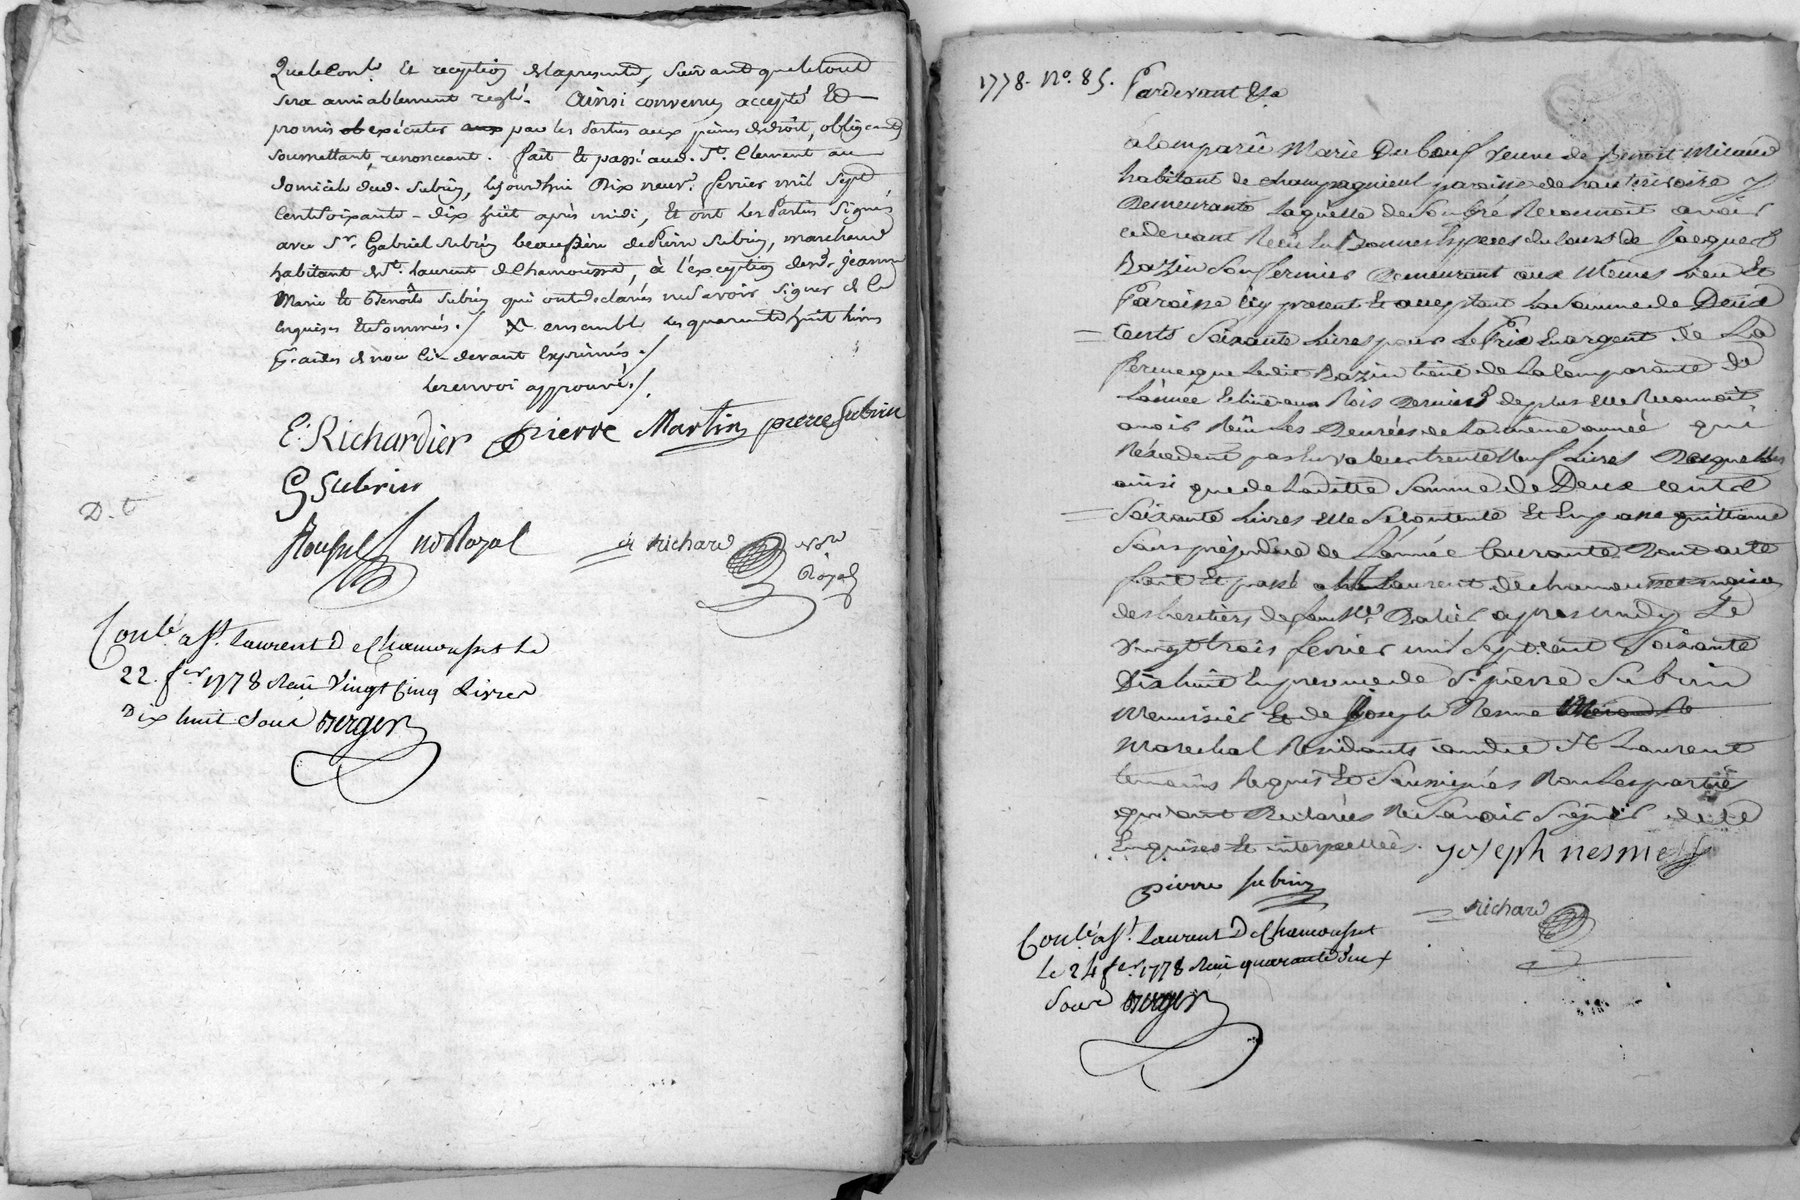 Quelconq. Et reception de la presente, suivant que le tout
sera amiablement reglé. Ainsi convenu accepté Et
promis executer par les Parties aux peines de droit, obligeant
soumettant, renonceant. fait Et passé aud. St. Clement au
domicile dud. Subrin, le jourdhui Dix neuf. fevrier mil Sept
Cent Soixante-dix huit après midi, Et ont les Parties Signé
avec Sr. Gabriel Subrin beaupère de Pierre Subrin, marchand
habitant de St. Laurent de Chamousset, à l'exception desd. Jeanne
Marie Et Benoîte Subrin qui ont declarées ne savoir signer de ce
Enquises Et Sommées ./ ensemble les quarante huit livres
Graites de noce ci-devant Exprimés ./
le renvoi approuvé ./
E: Richardier pierre Martin pierre Subrin
G Subrin
D. t
no Royal Richard
Royal
Conlé a St. Laurent De Chamousset le
22. fer 1778 Reçu Vingt Cinq Livres
Dix huit sous Berger
1778. No. 85. Pardevant &a
a Comparüe Marie Dubouf veuve de Benoît Micaud
habitant de Champagnieul paroisse de hauterivoire y
Demeurante laquelle de Son Gré Reconnoît avoir
cydevant Recu En Bonnes Especes du Cours de Jacques
Bazin Sous fermier Demeurant aux Memes Lieu Et
Paroisse ici present Et acceptant la Somme de Deux
Cents Soixante Livres pour Le Prix En argent de La
ferme que Ledit Bazin tient de La Comparante de
L'année Echüe aux Rois Derniers de plus elle Reconnoît
avoir Reçu Les Denrées de La meme année qui
N'éxcedent pas La valeur trente Neuf Livres Desquelles
ainsi que de Laditte Somme de Deux Cents
Soixante Livres elle Se Contente Et En passe quittance
Sans préjudice de L'année Courante Dont acte
fait Et passé a St Laurent de Chamousset maison
des heritiers de feu Sr. Ratier apres midy Le
Vingt trois fevrier mil Sept Cent Soixante
Dix huit En presence de Sr. pierre Subrin
Menuisier Et de Joseph Nesme
Marechal Residants audit St Laurent
temoins Requis Et Soussignés Non Les parties
qui ont Declarées Ne Savoir Signer de Ce
Enquises Et interpellées. joseph nesme
pierre subrin
Richard
Conlé a St. Laurent De Chamousset
le 24 fer. 1778 Reçu quarante deux
Sous Berger